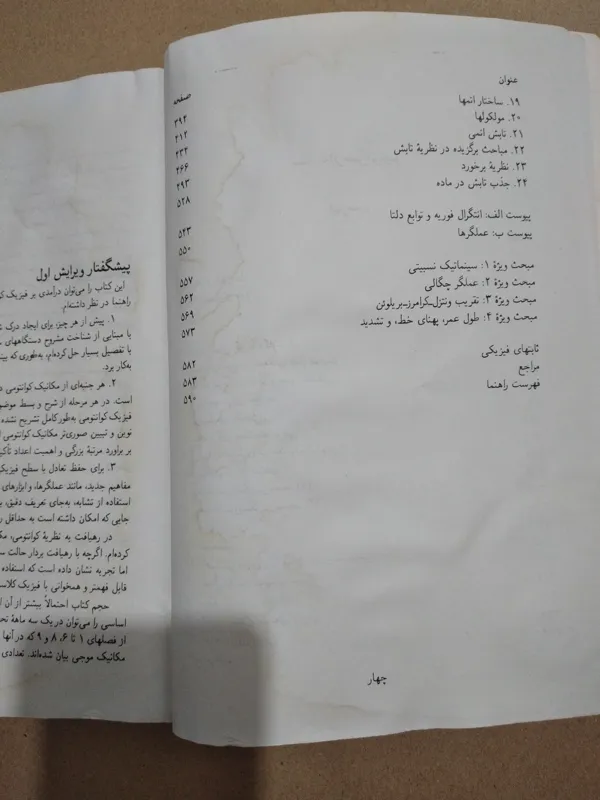 عنوان صفحه
۱۹. ساختار اتمها ۳۹۴
۲۰. مولکولها ۴۱۲
۲۱. تابش اتمی ۴۳۲
۲۲. مباحث برگزیده در نظریهٔ تابش ۴۶۶
۲۳. نظریهٔ برخورد ۴۹۳
۲۴. جذب تابش در ماده ۵۲۸
پیوست الف: انتگرال فوریه و توابع دلتا ۵۴۳
پیوست ب: عملگرها ۵۵۰
مبحث ویژهٔ ۱: سینماتیک نسبیتی ۵۵۷
مبحث ویژهٔ ۲: عملگر چگالی ۵۶۲
مبحث ویژهٔ ۳: تقریب ونتزل‌ـ‌کرامرزـ‌بریلوئن ۵۶۹
مبحث ویژهٔ ۴: طول عمر، پهنای خط، و تشدید ۵۷۳
ثابتهای فیزیکی ۵۸۲
مراجع ۵۸۳
فهرست راهنما ۵۹۰
چهار
پیشگفتار ویرایش اول
این کتاب را می‌توان درآمدی بر فیزیک
راهنما در نظر داشته‌ام.
۱. پیش از هر چیز، برای ایجاد درک
یا مبتنایی از شناخت مشروح دستگاههای
با تفصیل بسیار حل کرده‌ام، به‌طوری که
به‌کار برد.
۲. هر جنبه‌ای از مکانیک کوانتومی
است. در هر مرحله از شرح و بسط
فیزیک کوانتومی به‌طور کامل تشریح نشده
نوین و تبیین صوری‌تر مکانیک کوانتومی
بر براورد مرتبهٔ بزرگی و اهمیت اعداد
۳. برای حفظ تعادل با سطح
مفاهیم جدید، مانند عملگرها، و ابزارهای
استفاده از تشابه، به‌جای تعریف دقیق،
جایی که امکان داشته است به حداقل
در رهیافت به نظریهٔ کوانتومی،
کرده‌ام. اگرچه با رهیافت بردار حالت
اما تجربه نشان داده است که استفاده
قابل فهمتر و همخوانی با فیزیک
حجم کتاب احتمالاً بیشتر از آن
اساسی را می‌توان در یک سه ماههٔ
از فصلهای ۱ تا ۶، ۸ و ۹ که در آنها
مکانیک موجی بیان شده‌اند. تعدادی